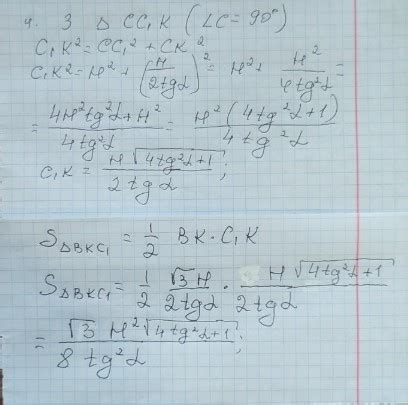 4. З Δ CC₁K (∠C = 90°)
C₁K² = CC₁² + CK²
C₁K² = H² + (H/2tgα)² = H² + H²/4tg²α =
= (4H²tg²α + H²)/4tg²α = H²(4tg²α+1)/4tg²α
C₁K = H√(4tg²α+1)/2tgα;
S△BKC₁ = 1/2 BK · C₁K
S△BKC₁ = 1/2 · √3H/2tgα · H√(4tg²α+1)/2tgα
= √3 H²√(4tg²α+1)/8tg²α;